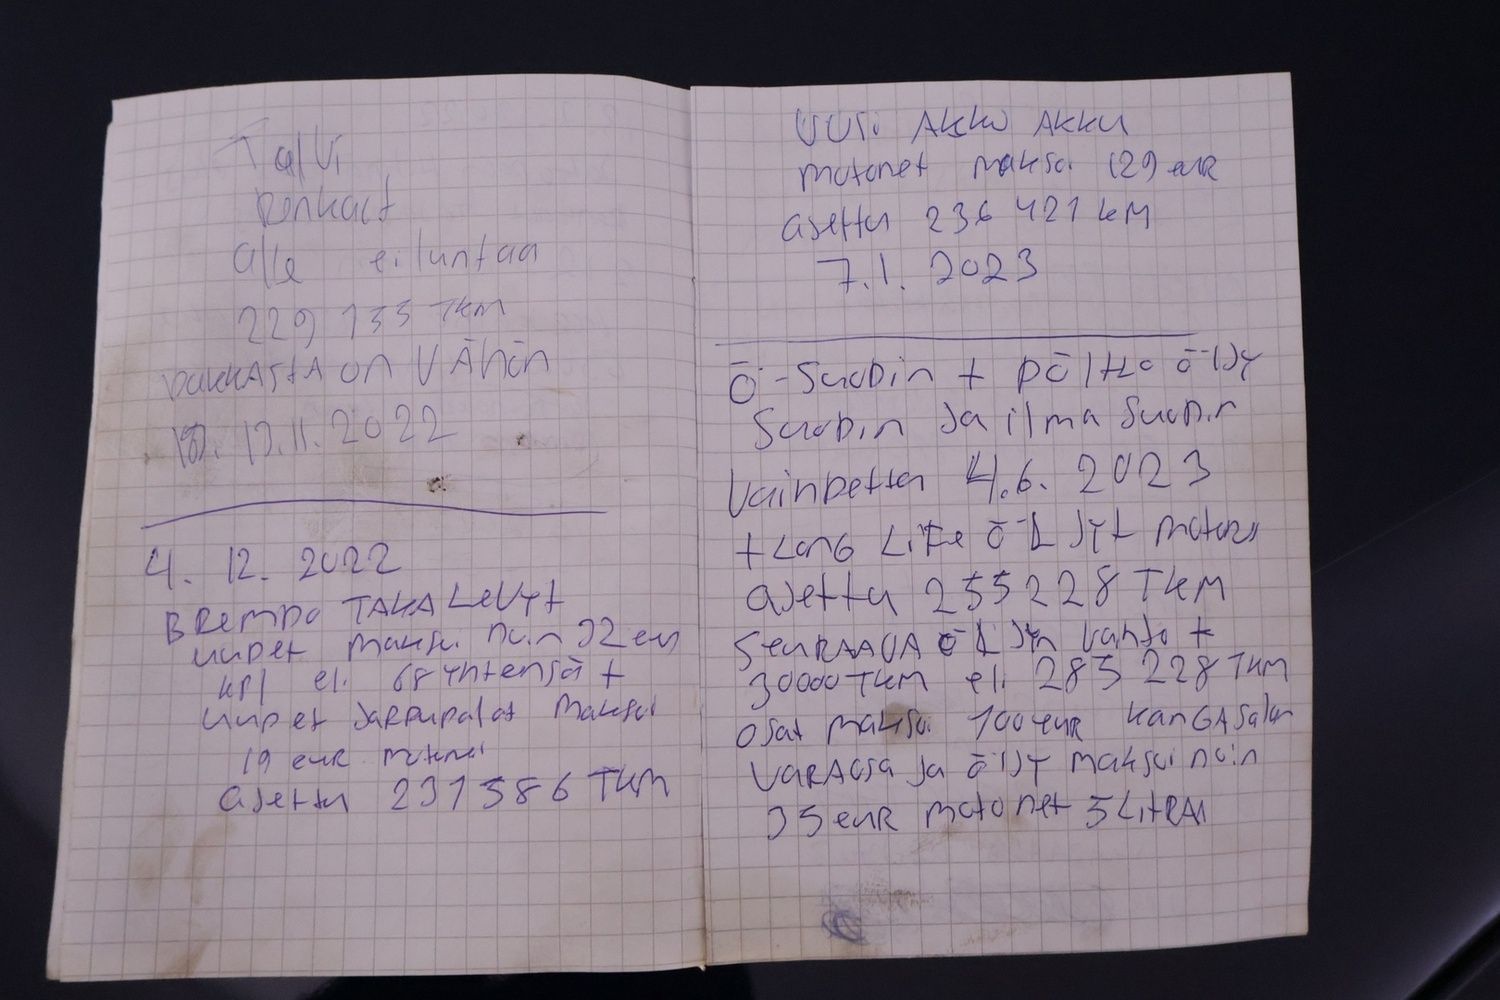 Talvi
Renkaat
alle ei luntaa
229 133 TKM
pakkasta on Vähän
13.11.2022
4. 12. 2022
BRempo TAKA LeVyt
uudet maksoi noin 32 eur
kpl eli 68 yhtensä +
uudet Jarrupalat maksoi
19 eur
aJettu 231586 TKM
UUSi AKKU AKKU
motonet maksoi 129 euR
aJettu 236 421 kM
7.1. 2023
Ö-Suodin + pöltto öljy
Suodin Ja ilma Suodin
Vaihdettu 4.6. 2023
+ LonG LiFe ÖLJyt motoni
aJettu 255228 TKM
SeuRAAVA ÖLJyn vaihto +
30000 TKM eli 285 228 TKM
Osat maksoi 100 euR KanGASalan
VaRAosa Ja öljy maksoi noin
35 euR motonet 5 LitRAa